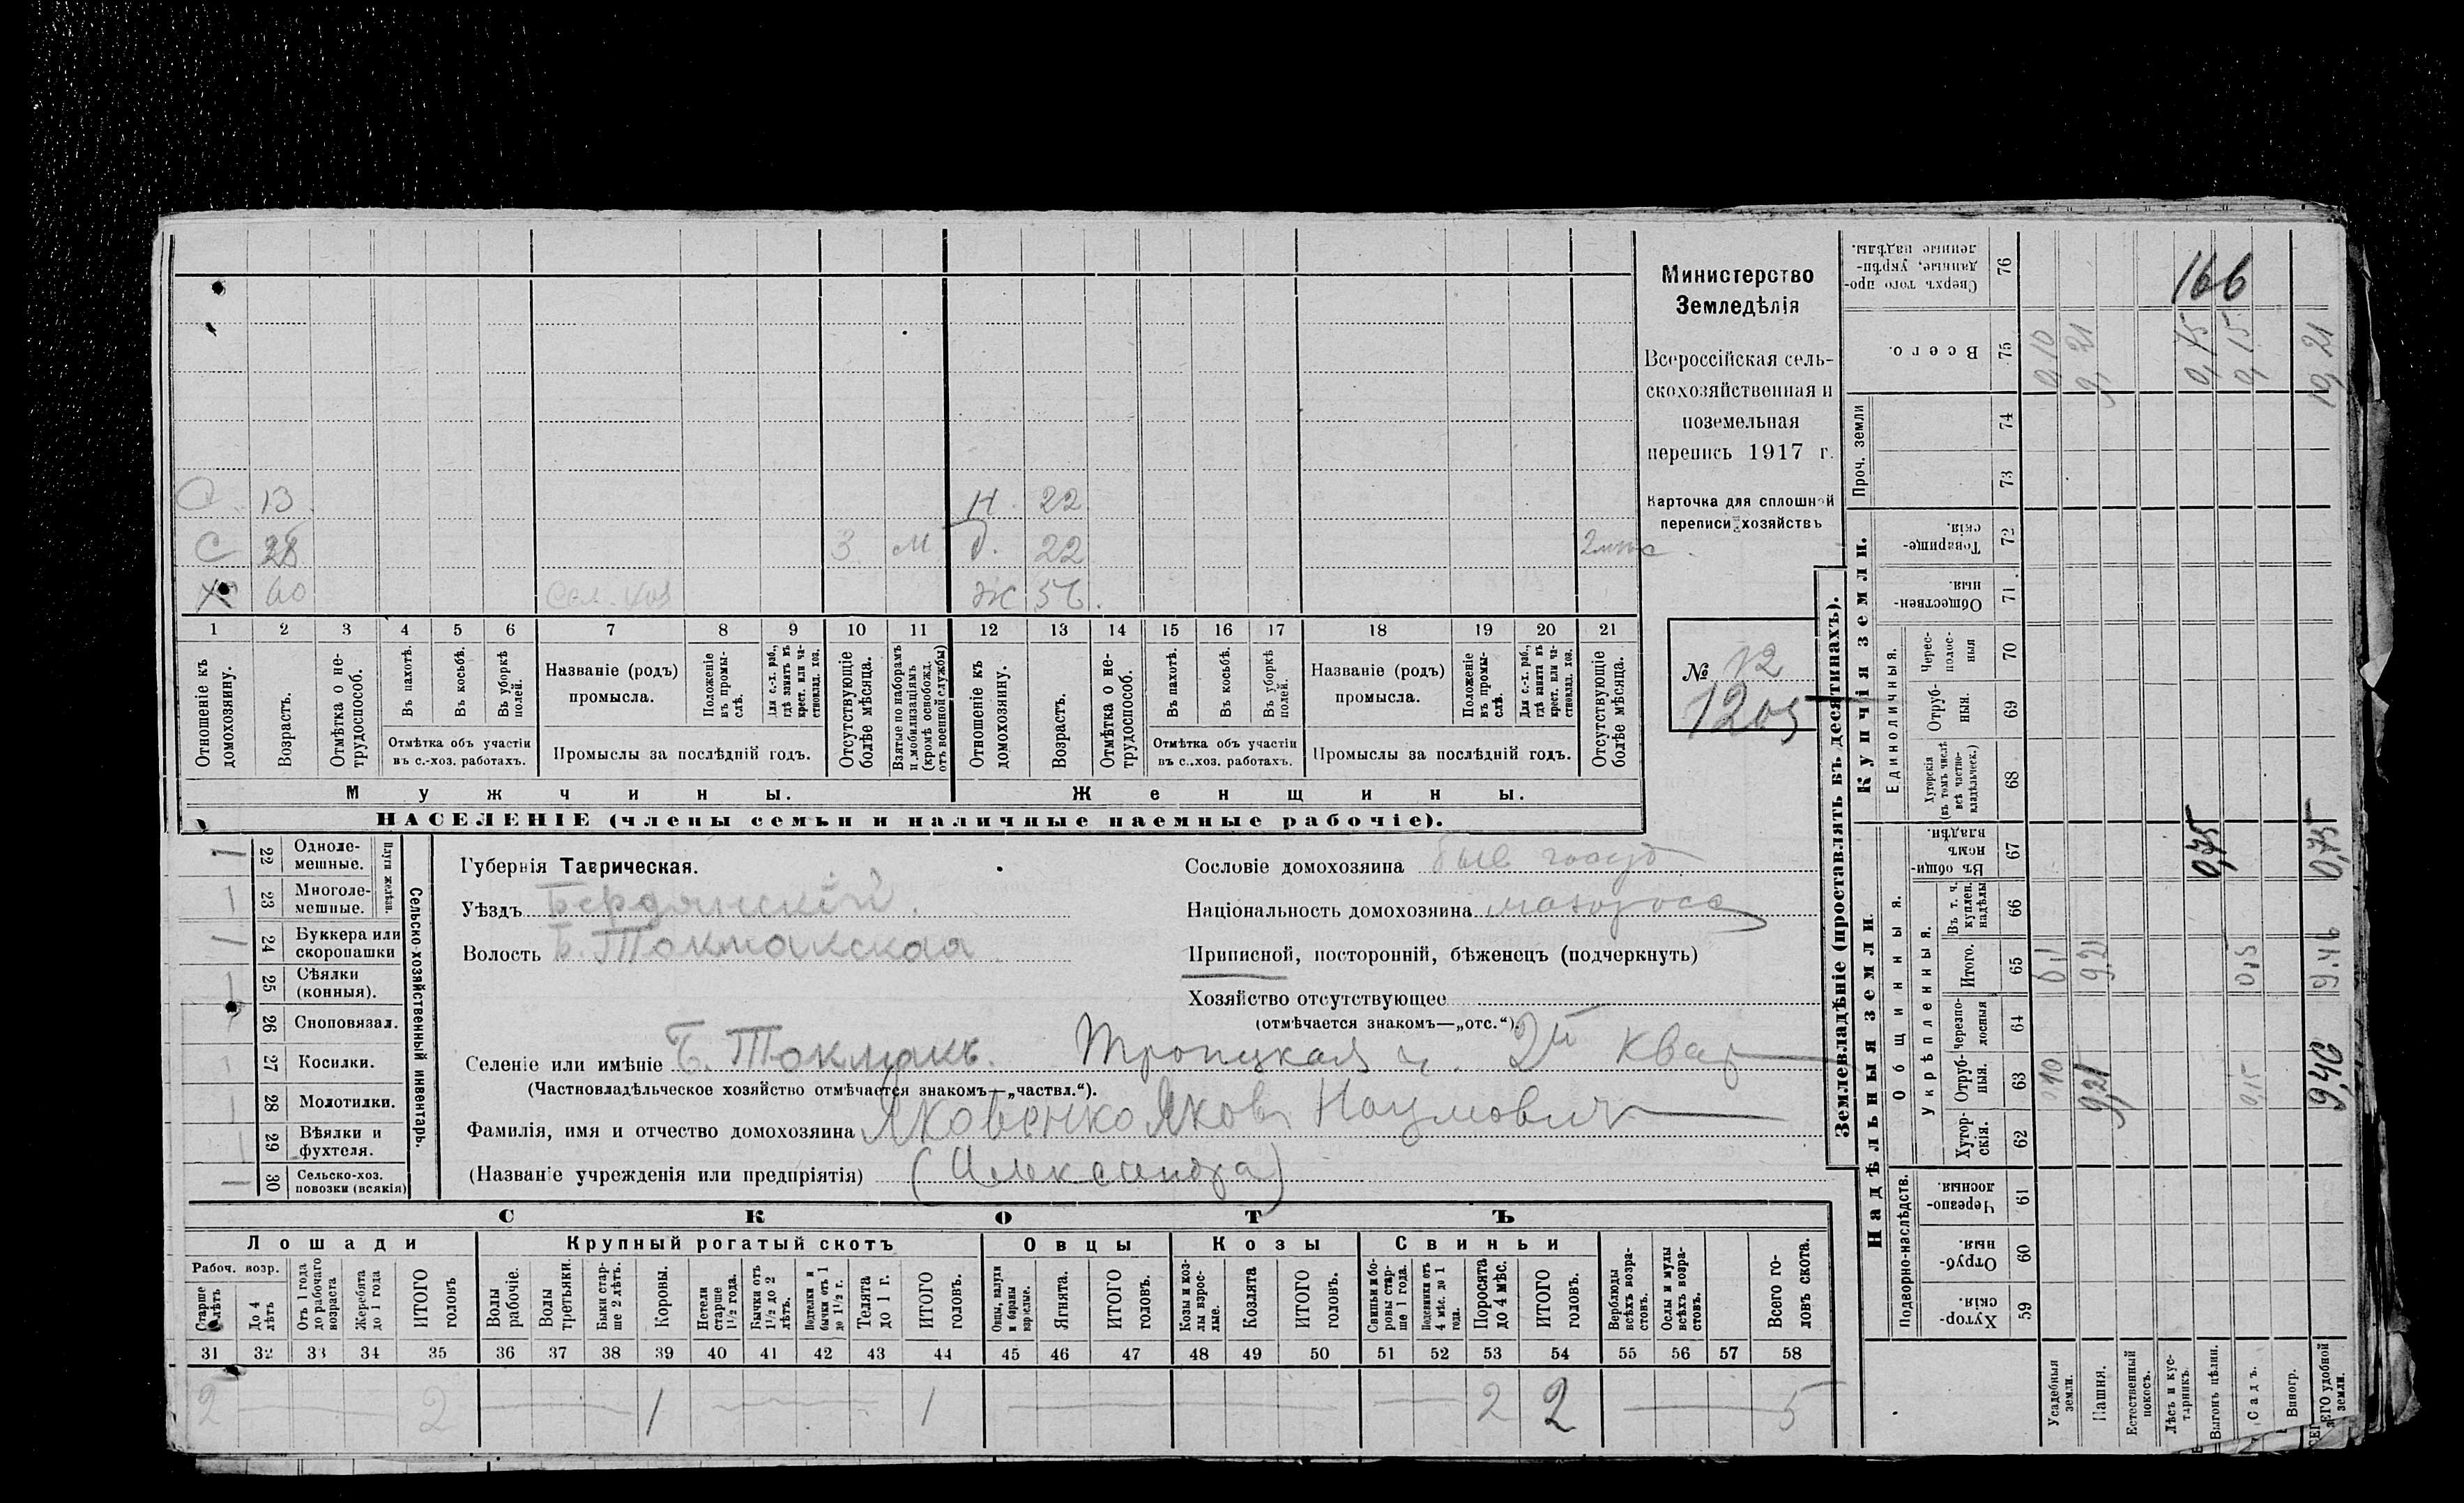 С. 13. Н. 22
С 28 3 М д. 22 2
Х 60 Сел. хоз Ж 56.
1 2 3 4 5 6 7 8 9 10 11 12 13 14 15 16 17 18 19 20 21
Отношеніе къ домохозяину.
Возрастъ.
Отмѣтка о нетрудоспособ.
Въ пахотѣ.
Въ косьбѣ.
Въ уборкѣ полей.
Отмѣтка объ участіи въ с.-хоз. работахъ.
Названіе (родъ) промысла.
Положеніе въ промыслѣ.
Для с.-х. раб., гдѣ занятъ въ крест. или частновлад. хоз.
Промыслы за послѣдній годъ.
Отсутствующіе болѣе мѣсяца.
Взятые по наборамъ и мобилизаціямъ (кромѣ освобожд. отъ военной службы)
Отношеніе къ домохозяину.
Возрастъ.
Отмѣтка о нетрудоспособ.
Въ пахотѣ.
Въ косьбѣ.
Въ уборкѣ полей.
Отмѣтка объ участіи въ с.-хоз. работахъ.
Названіе (родъ) промысла.
Положеніе въ промыслѣ.
Для с.-х. раб., гдѣ занята въ крест. или частновлад. хоз.
Промыслы за послѣдній годъ.
Отсутствующіе болѣе мѣсяца.
Мужчины. Женщины.
НАСЕЛЕНІЕ (члены семьи и наличные наемные рабочіе).
Министерство
Земледѣлія
Всероссійская сель-
скохозяйственная и
поземельная
перепись 1917 г.
Карточка для сплошной
переписи хозяйствъ
№ 12
1205
22 Одноле-мешные. 1
23 Многоле-мешные. 1
Плуги желѣзн.
24 Буккера или скоропашки 1
25 Сѣялки (конныя). 1
26 Сноповязал. 1
27 Косилки. 1
28 Молотилки. 1
29 Вѣялки и фухтеля. 1
30 Сельско-хоз. повозки (всякія) 1
Сельско-хозяйственный инвентарь.
Губернія Таврическая.
Уѣздъ Бердянскій.
Волость Б. Токмакская
Сословіе домохозяина быв госуд
Національность домохозяина малоросс
Приписной, посторонній, бѣженецъ (подчеркнуть)
Хозяйство отсутствующее
(отмѣчается знакомъ—„отс.“).
Селеніе или имѣніе Б. Токмакъ. Троицкая ч. 2й квар
(Частновладѣльческое хозяйство отмѣчается знакомъ—„частвл.“).
Фамилія, имя и отчество домохозяина Яковенко Яковъ Наумович
(Названіе учрежденія или предпріятія) (Александра)
СКОТЪ
Лошади Крупный рогатый скотъ Овцы Козы Свиньи
Рабоч. возр.
Старше 4 лѣтъ
До 4 лѣтъ
Отъ 1 года до рабочаго возраста
Жеребята до 1 года
ИТОГО головъ
Волы рабочіе.
Волы третьяки.
Быки старше 2 лѣтъ.
Коровы.
Нетели старше 1½ года.
Бычки отъ 1½ до 2 лѣтъ.
Подтелки и бычки отъ 1 до 1½ г.
Телята до 1 г.
ИТОГО головъ.
Овцы, валухи и бараны взрослые.
Ягнята.
ИТОГО головъ.
Козы и козлы взрослые.
Козлята
ИТОГО головъ.
Свиньи и боровы старше 1 года.
Подсвинки отъ 4 мѣс. до 1 года.
Поросята до 4 мѣс.
ИТОГО головъ.
Верблюды всѣхъ возрастовъ.
Ослы и мулы всѣхъ возрастовъ.
Всего головъ скота.
31 32 33 34 35 36 37 38 39 40 41 42 43 44 45 46 47 48 49 50 51 52 53 54 55 56 57 58
2 2 1 1 2 2 5
Землевладѣніе (проставлять въ десятинахъ).
Надѣльныя земли. Купчія земли. Проч. земли
Подворно-наслѣдств. Общинныя. Единоличныя.
Укрѣпленныя.
Хуторскія 59
Отрубныя 60
Черезполосныя. 61
Хуторскія. 62
Отрубныя. 63
Черезполосныя 64
Итого. 65
Въ т. ч. куплен. надѣлы 66
Въ общинномъ владѣн. 67
Хуторскія (въ томъ числѣ всѣ частновладѣльческ.) 68
Отрубныя. 69
Чересполосныя 70
Общественныя. 71
Товарищескія. 72
73
74
Всего. 75
Сверхъ того проданные, укрѣпленные надѣлы. 76
Усадебныя земли. 0,10 0,1 0,10
Пашня. 9,21 9,21 9,21
Естественный покосъ.
Лѣсъ и кустарникъ.
Выгонъ цѣлин. 0,75 0,75
Садъ. 0,15 0,15 0,15
Виногр.
ВСЕГО удобной земли. 9,46 9,46 0,75 10,21
166